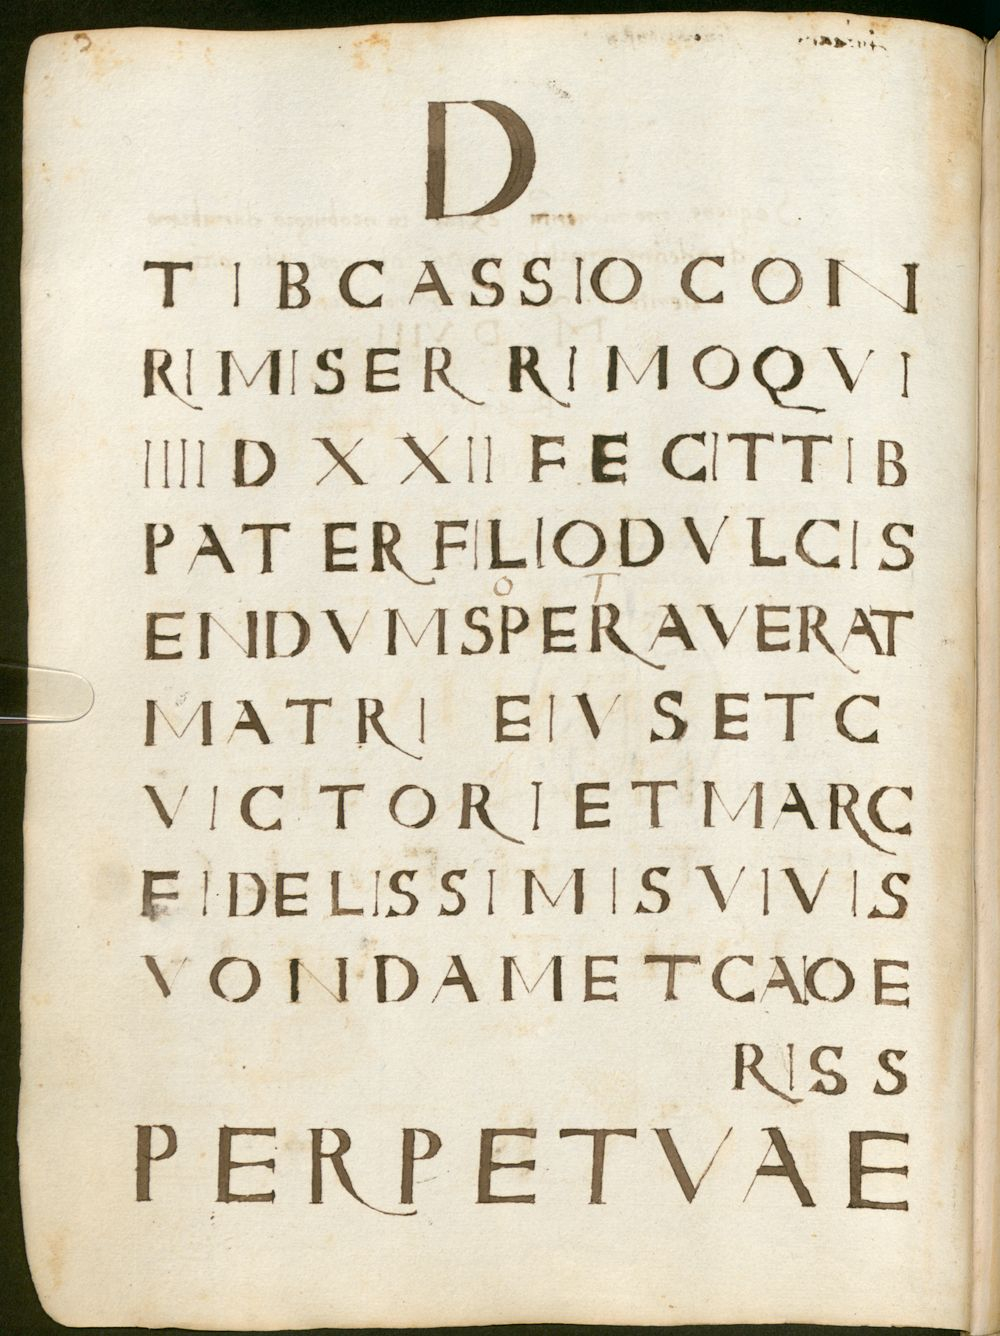 D
TIBCASSIO CONI
RIMISER RIMOQVI
IIII D XXII FECITTIB
PATERFILIODVLCIS
O T
ENDVMSPERAVERAT
MATRI EIVSETC
VICTORIETMARC
FIDELISSIMISVIVIS
VONDAMETCAIOE
RISS
PERPETVAE